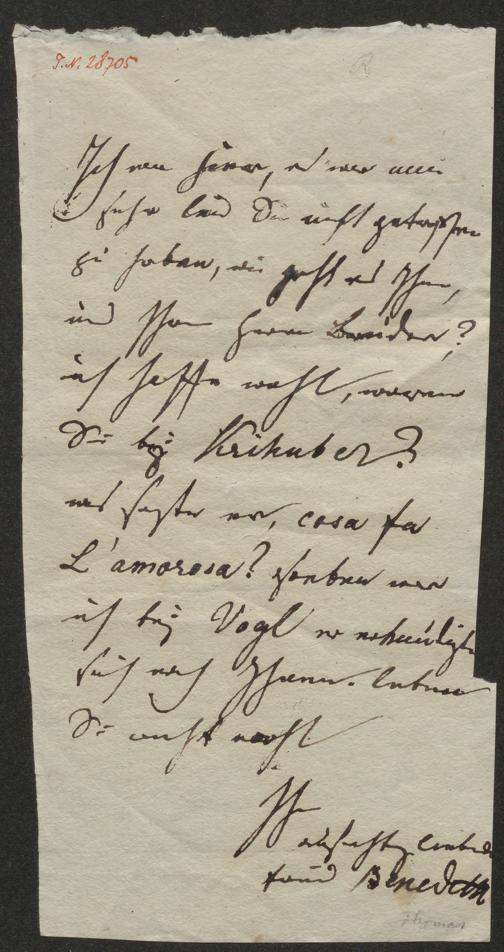 I.N. 28705
Ich war hier, es war mir
sehr leid Sie nicht getroffen
zu haben, wie geht es Ihnen,
und Ihrem Herrn Bruder?
ich hoffe wohl, waren
Sie bey Krihuber?
was sagte er, cosa fa
L'amorosa? soeben war
ich bey Vogl er erkundigte
sich nach Ihnen. leben
Sie recht wohl
Ihr
aufrichtig liebender
Freund Benedetti
Thomas